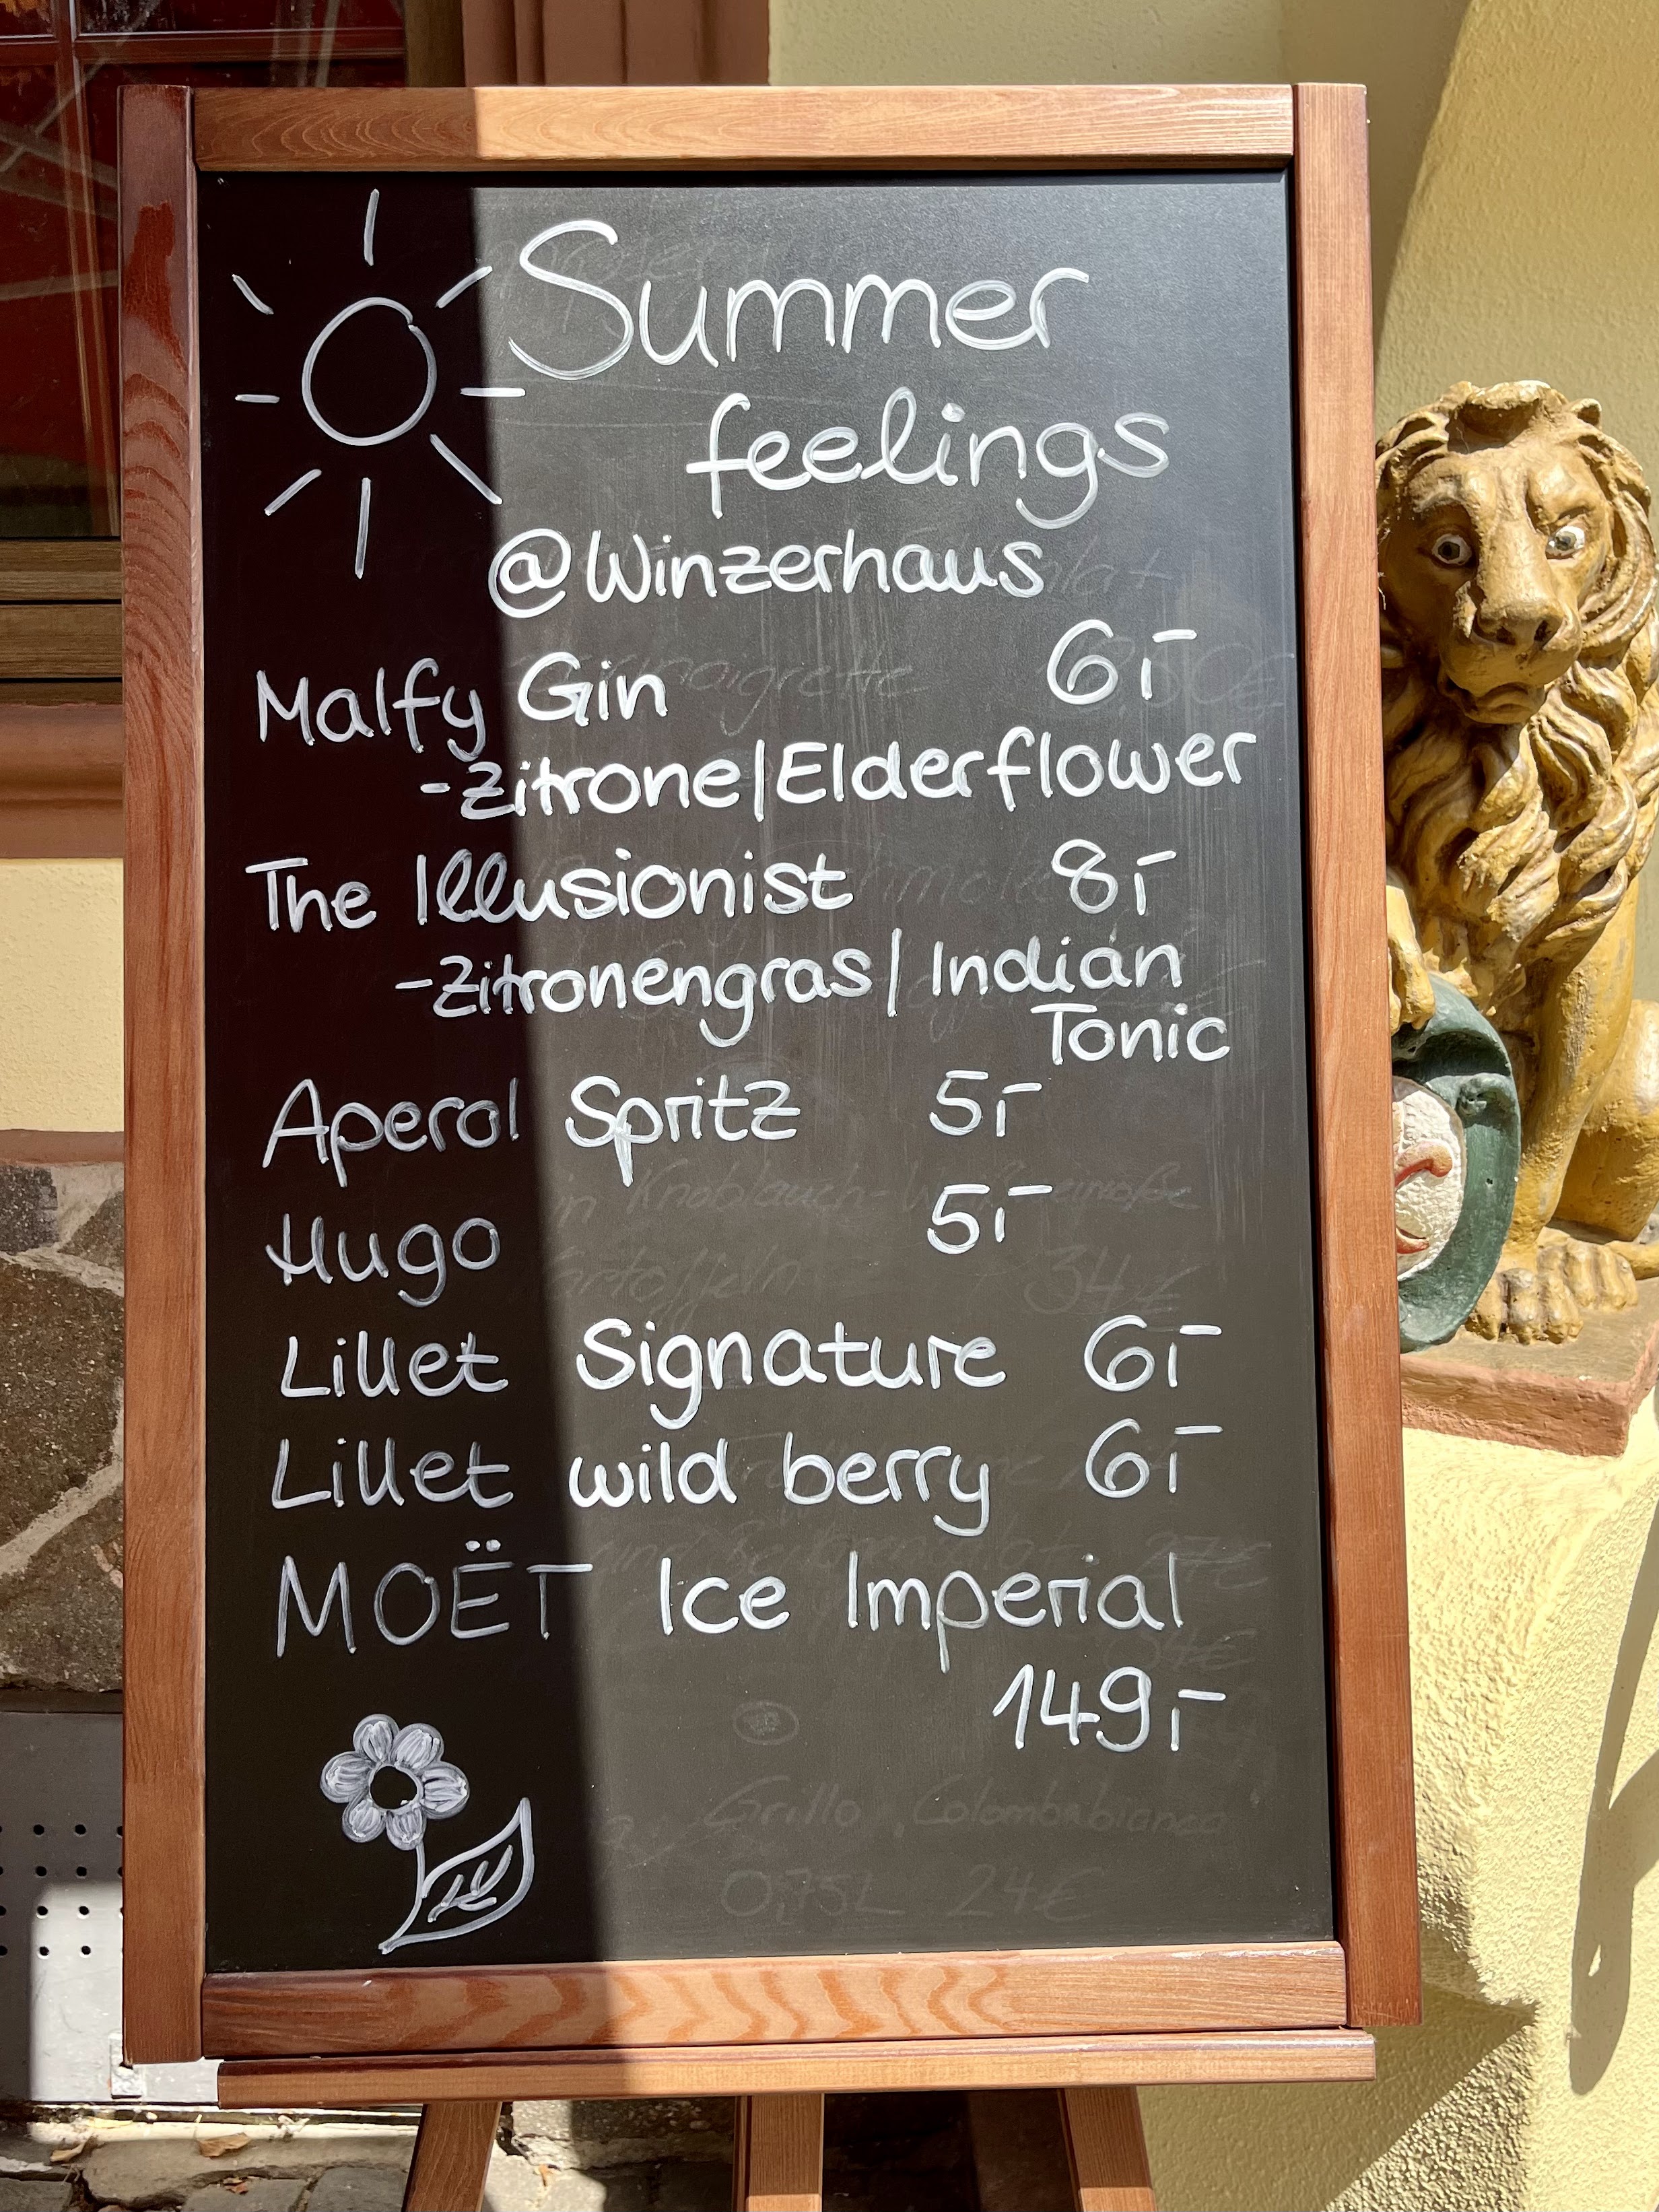 Summer
feelings
@Winzerhaus
Malfy Gin 6,-
-Zitrone/Elderflower
The Illusionist 8,-
-Zitronengras/Indian
Tonic
Aperol Spritz 5,-
Hugo 5,-
Lillet Signature 6,-
Lillet wild berry 6,-
MOËT Ice Imperial
149,-
Grillo
0,75L 24€